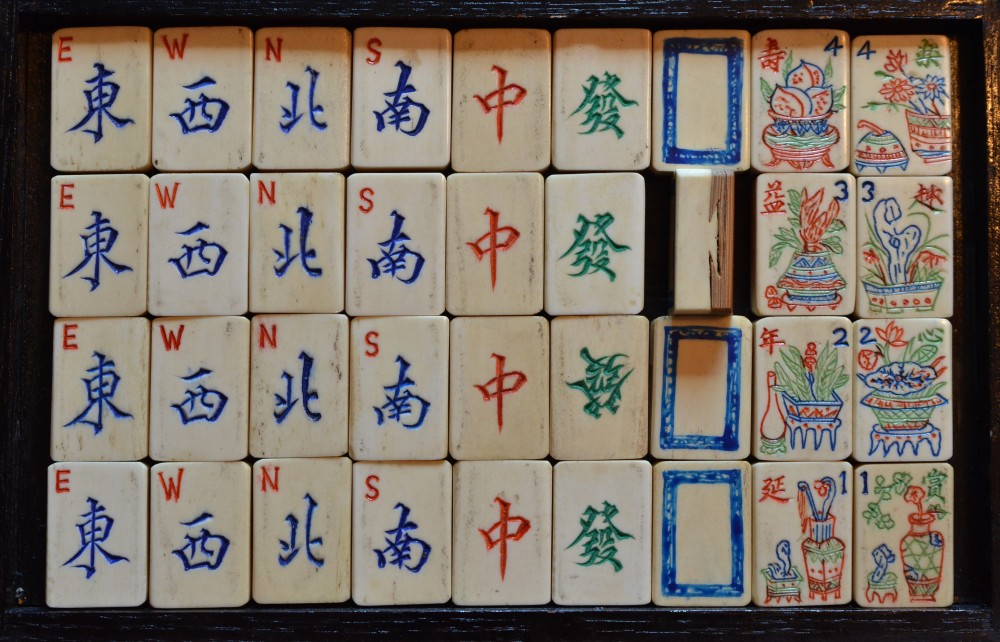 E 東 W 西 N 北 S 南 中 發 寿 4 4 樂
E 東 W 西 N 北 S 南 中 發 益 3 3
E 東 W 西 N 北 S 南 中 發 年 2 2 心
E 東 W 西 N 北 S 南 中 發 延 1 1 賞